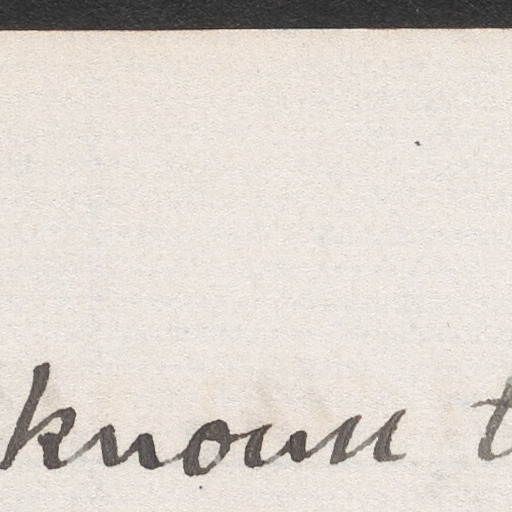 known t